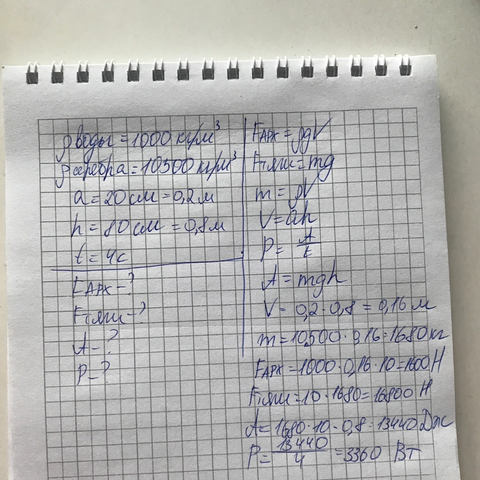 ρ воды = 1000 кг/м³
ρ серебра = 10500 кг/м³
a = 20 см = 0,2 м
h = 80 см = 0,8 м
t = 4 с
Fарх - ?
Fтяж - ?
A - ?
P = ?
Fарх = ρgV
Fтяж = mg
m = ρV
V = ah
P = A/t
A = mgh
V = 0,2 · 0,8 = 0,16 м
m = 10500 · 0,16 = 1680 кг
Fарх = 1000 · 0,16 · 10 = 1600 Н
Fтяж = 10 · 1680 = 16800 Н
A = 1680 · 10 · 0,8 = 13440 Дж
P = 13440/4 = 3360 Вт